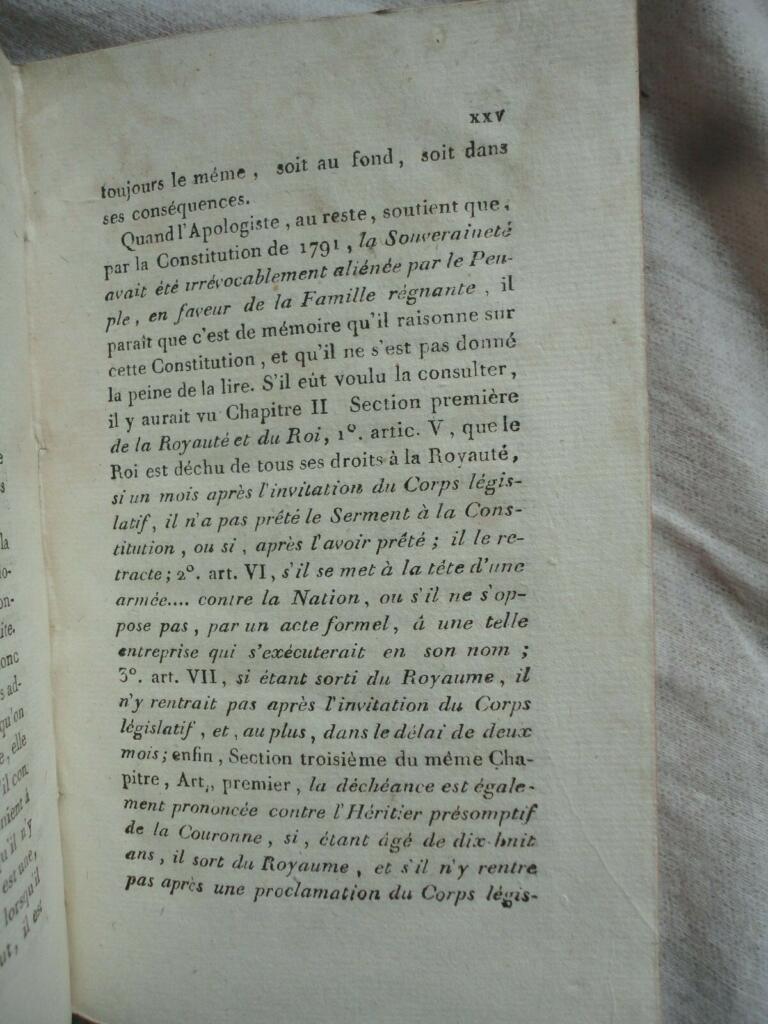 xxv
toujours le même, soit au fond, soit dans
ses conséquences.
Quand l'Apologiste, au reste, soutient que,
par la Constitution de 1791, la Souveraineté
avait été irrévocablement aliénée par le Peu-
ple, en faveur de la Famille régnante, il
paraît que c'est de mémoire qu'il raisonne sur
cette Constitution, et qu'il ne s'est pas donné
la peine de la lire. S'il eût voulu la consulter,
il y aurait vu Chapitre II Section première
de la Royauté et du Roi, 1°. artic. V, que le
Roi est déchu de tous ses droits à la Royauté,
si un mois après l'invitation du Corps légis-
latif, il n'a pas prêté le Serment à la Cons-
titution, ou si, après l'avoir prêté; il le re-
tracte; 2°. art. VI, s'il se met à la tête d'une
armée.... contre la Nation, ou s'il ne s'op-
pose pas, par un acte formel, à une telle
entreprise qui s'exécuterait en son nom;
3°. art. VII, si étant sorti du Royaume, il
n'y rentrait pas après l'invitation du Corps
législatif, et, au plus, dans le délai de deux
mois; enfin, Section troisième du même Cha-
pitre, Art., premier, la déchéance est égale-
ment prononcée contre l'Héritier présomptif
de la Couronne, si, étant âgé de dix-huit
ans, il sort du Royaume, et s'il n'y rentre
pas après une proclamation du Corps légis-